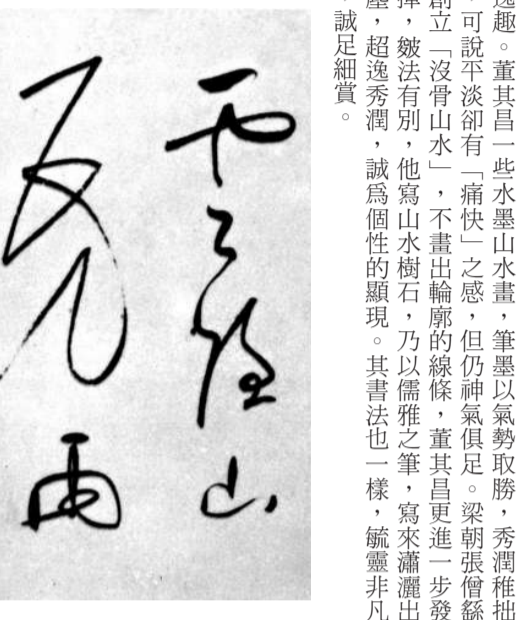 逸趣。董其昌一些水墨山水畫，筆墨以氣勢取勝，秀潤稚拙
，可說平淡卻有「痛快」之感，但仍神氣俱足。梁朝張僧繇
創立「沒骨山水」，不畫出輪廓的線條，董其昌更進一步發
揮，皺法有別，他寫山水樹石，乃以儒雅之筆，寫來瀟灑出
塵，超逸秀潤，誠爲個性的顯現。其書法也一樣，毓靈非凡
，誠足細賞。
雲山
雨